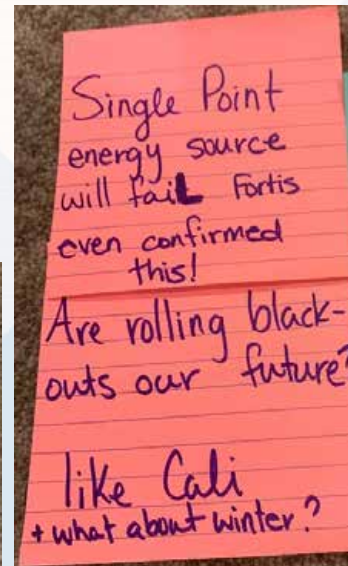 Single Point
energy source
will faiL Fortis
even confirmed
this!
Are rolling black-
outs our future?
like Cali
+ what about winter?